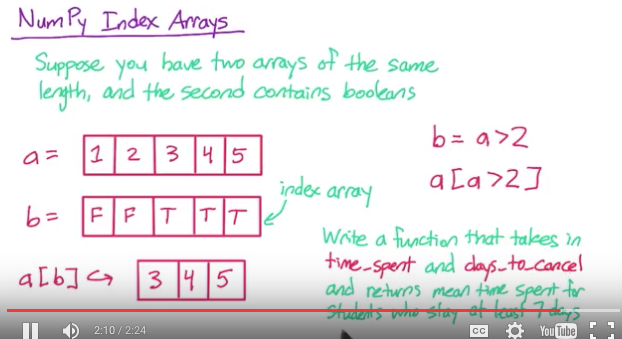 NumPy Index Arrays
Suppose you have two arrays of the same
length, and the second contains booleans
a = 1 2 3 4 5
b = F F T T T
index array
a[b] ↪ 3 4 5
b = a>2
a[a>2]
Write a function that takes in
time_spent and days_to_cancel
and returns mean time spent for
students who stay at least 7 days
2:10 / 2:24
CC
YouTube